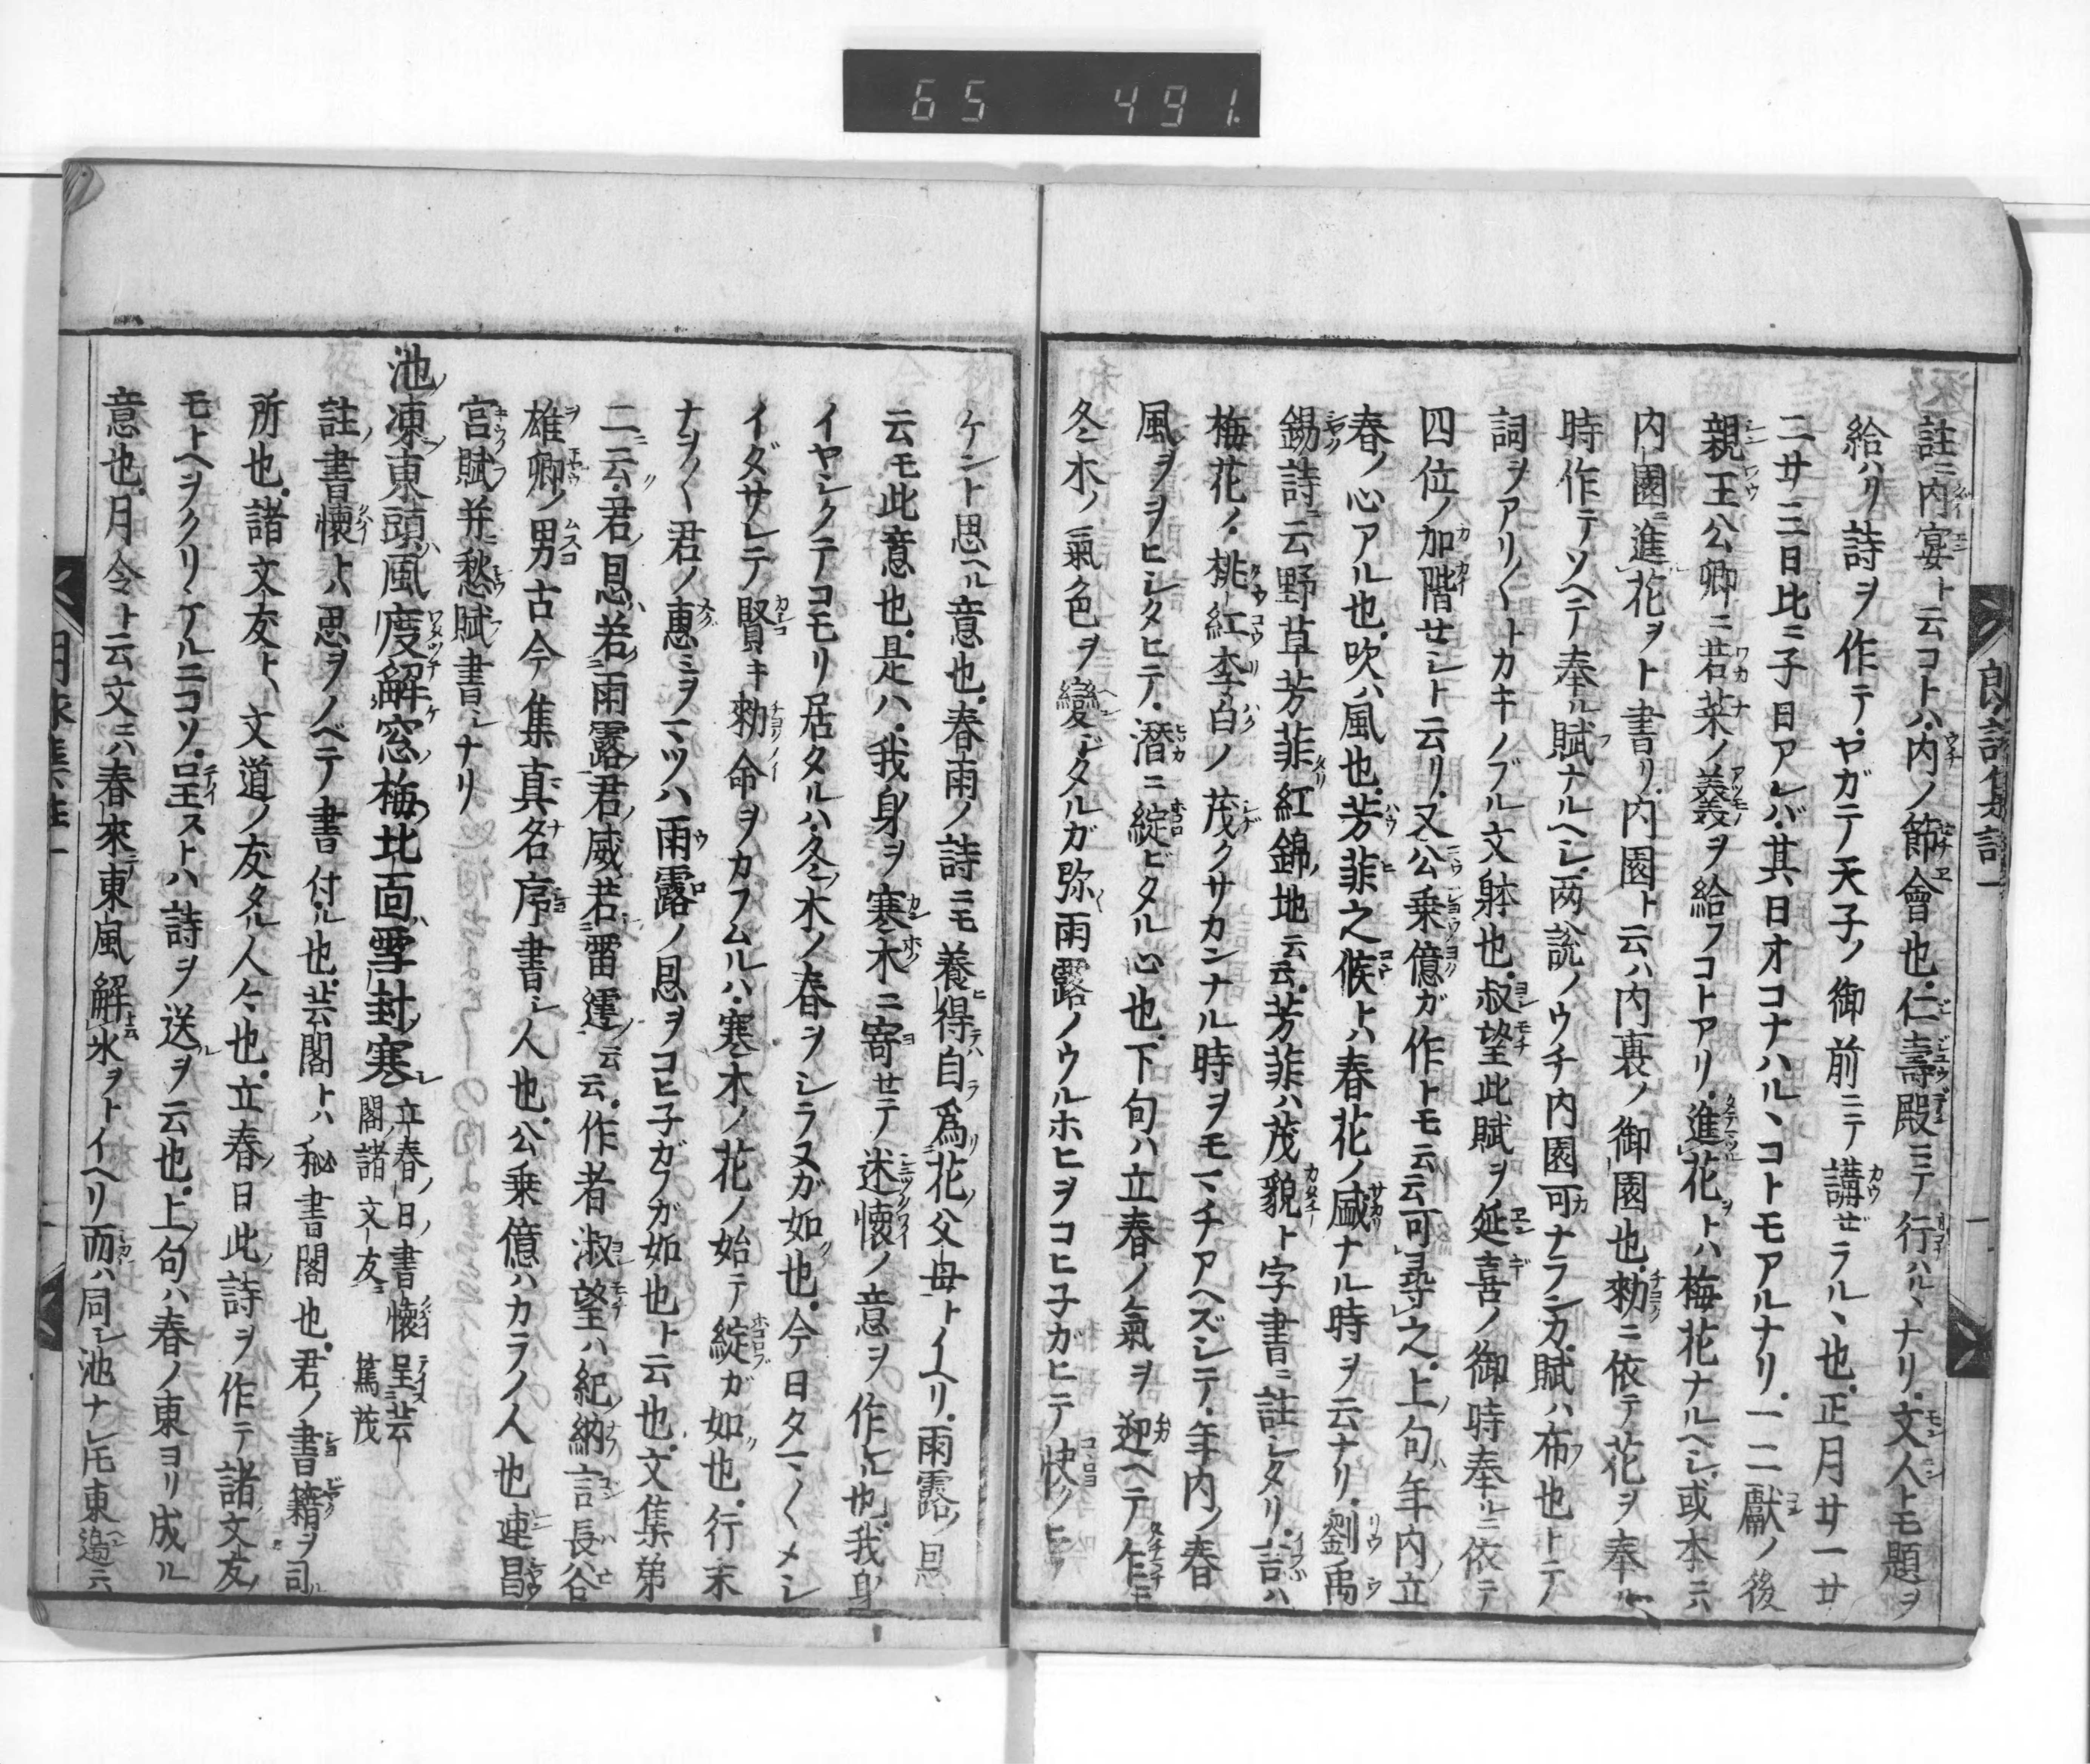 65 491.
朗詠集註一
註ニ内宴ト云コトハ内ノ節會也仁壽殿ニテ行ハルヽナリ文人トモ題ヲ
給ハリ詩ヲ作テヤガテ天子ノ御前ニテ講ゼラルヽ也正月廿一廿
二廿三日比ニ子日アレバ其日オコナハルヽコトモアルナリ一二獻ノ後
親王公卿ニ若菜ノ羹ヲ給フコトアリ進花ヲトハ梅花ナルヘシ或本ニハ
内園ニ進花ヲト書リ内園ト云ハ内裏ノ御園也勅ニ依テ花ヲ奉ル
時作テソヘテ奉ル賦ナルヘシ両説ノウチ内園可ナランカ賦ハ布也トテ
詞ヲアリ〱トカキノブル文躰也叔望此賦ヲ延喜ノ御時奉ルニ依テ
四位ノ加階セシト云リ又公乗億ガ作トモ云云可尋之上句ハ年内ノ立
春ノ心アル也吹ハ風也芳菲之候トハ春花ノ盛ナル時ヲ云ナリ劉禹
錫詩ニ云野草芳菲紅錦地云云芳菲ハ茂貌ト字書ニ註シタリ言ハ
梅花ノ桃紅李白ノ茂クサカンナル時ヲモマチアヘズシテ年内ノ春
風ヲヲヒシタヒテ潜ニ綻ビタル心也下句ハ立春ノ氣ヲ迎ヘテ乍ニ
冬木ノ氣色ヲ變ジタルガ弥雨露ノウルホヒヲコヒ子ガヒテ快ク
ケント思ヘル意也春雨ノ詩ニモ養得自爲花父母トイヘリ雨露ノ恩
云モ此意也是ハ我身ヲ寒木ニ寄セテ述懷ノ意ヲ作ル也我身
イヤシクテコモリ居タルハ冬木ノ春ヲシラヌガ如也今日タマ〱メシ
イダサレテ賢キ勅命ヲカフムルハ寒木ノ花ノ始テ綻ガ如也行末
ナヲ〱君ノ惠ミヲマツハ雨露ノ恩ヲコヒ子ガフガ如也ト云也文集弟
二ニ云君恩ハ若雨露君威若雷霆云云作者淑望ハ紀納言長谷
雄卿ノ男古今集真名序書シ人也公乗億ハカラノ人也連昌
宮賦并愁賦書シナリ
池凍東頭風度解窓梅北面雪封寒 立春日書懷呈芸閣諸文友 篤茂
註書懷トハ思ヲノベテ書付ル也芸閣トハ秘書閣也君ノ書籍ヲ司ル
所也諸文友トハ文道ノ友タル人々也立春ノ日此詩ヲ作テ諸文友ノ
モトヘヲクリケルニコソ呈ストハ詩ヲ送ルヲ云也上句ハ春ノ東ヨリ成ル
意也月令ト云文ニハ春來東風解氷ヲトイヘリ而ハ同シ池ナレ𪜈東邉ニハ
朗詠集註一